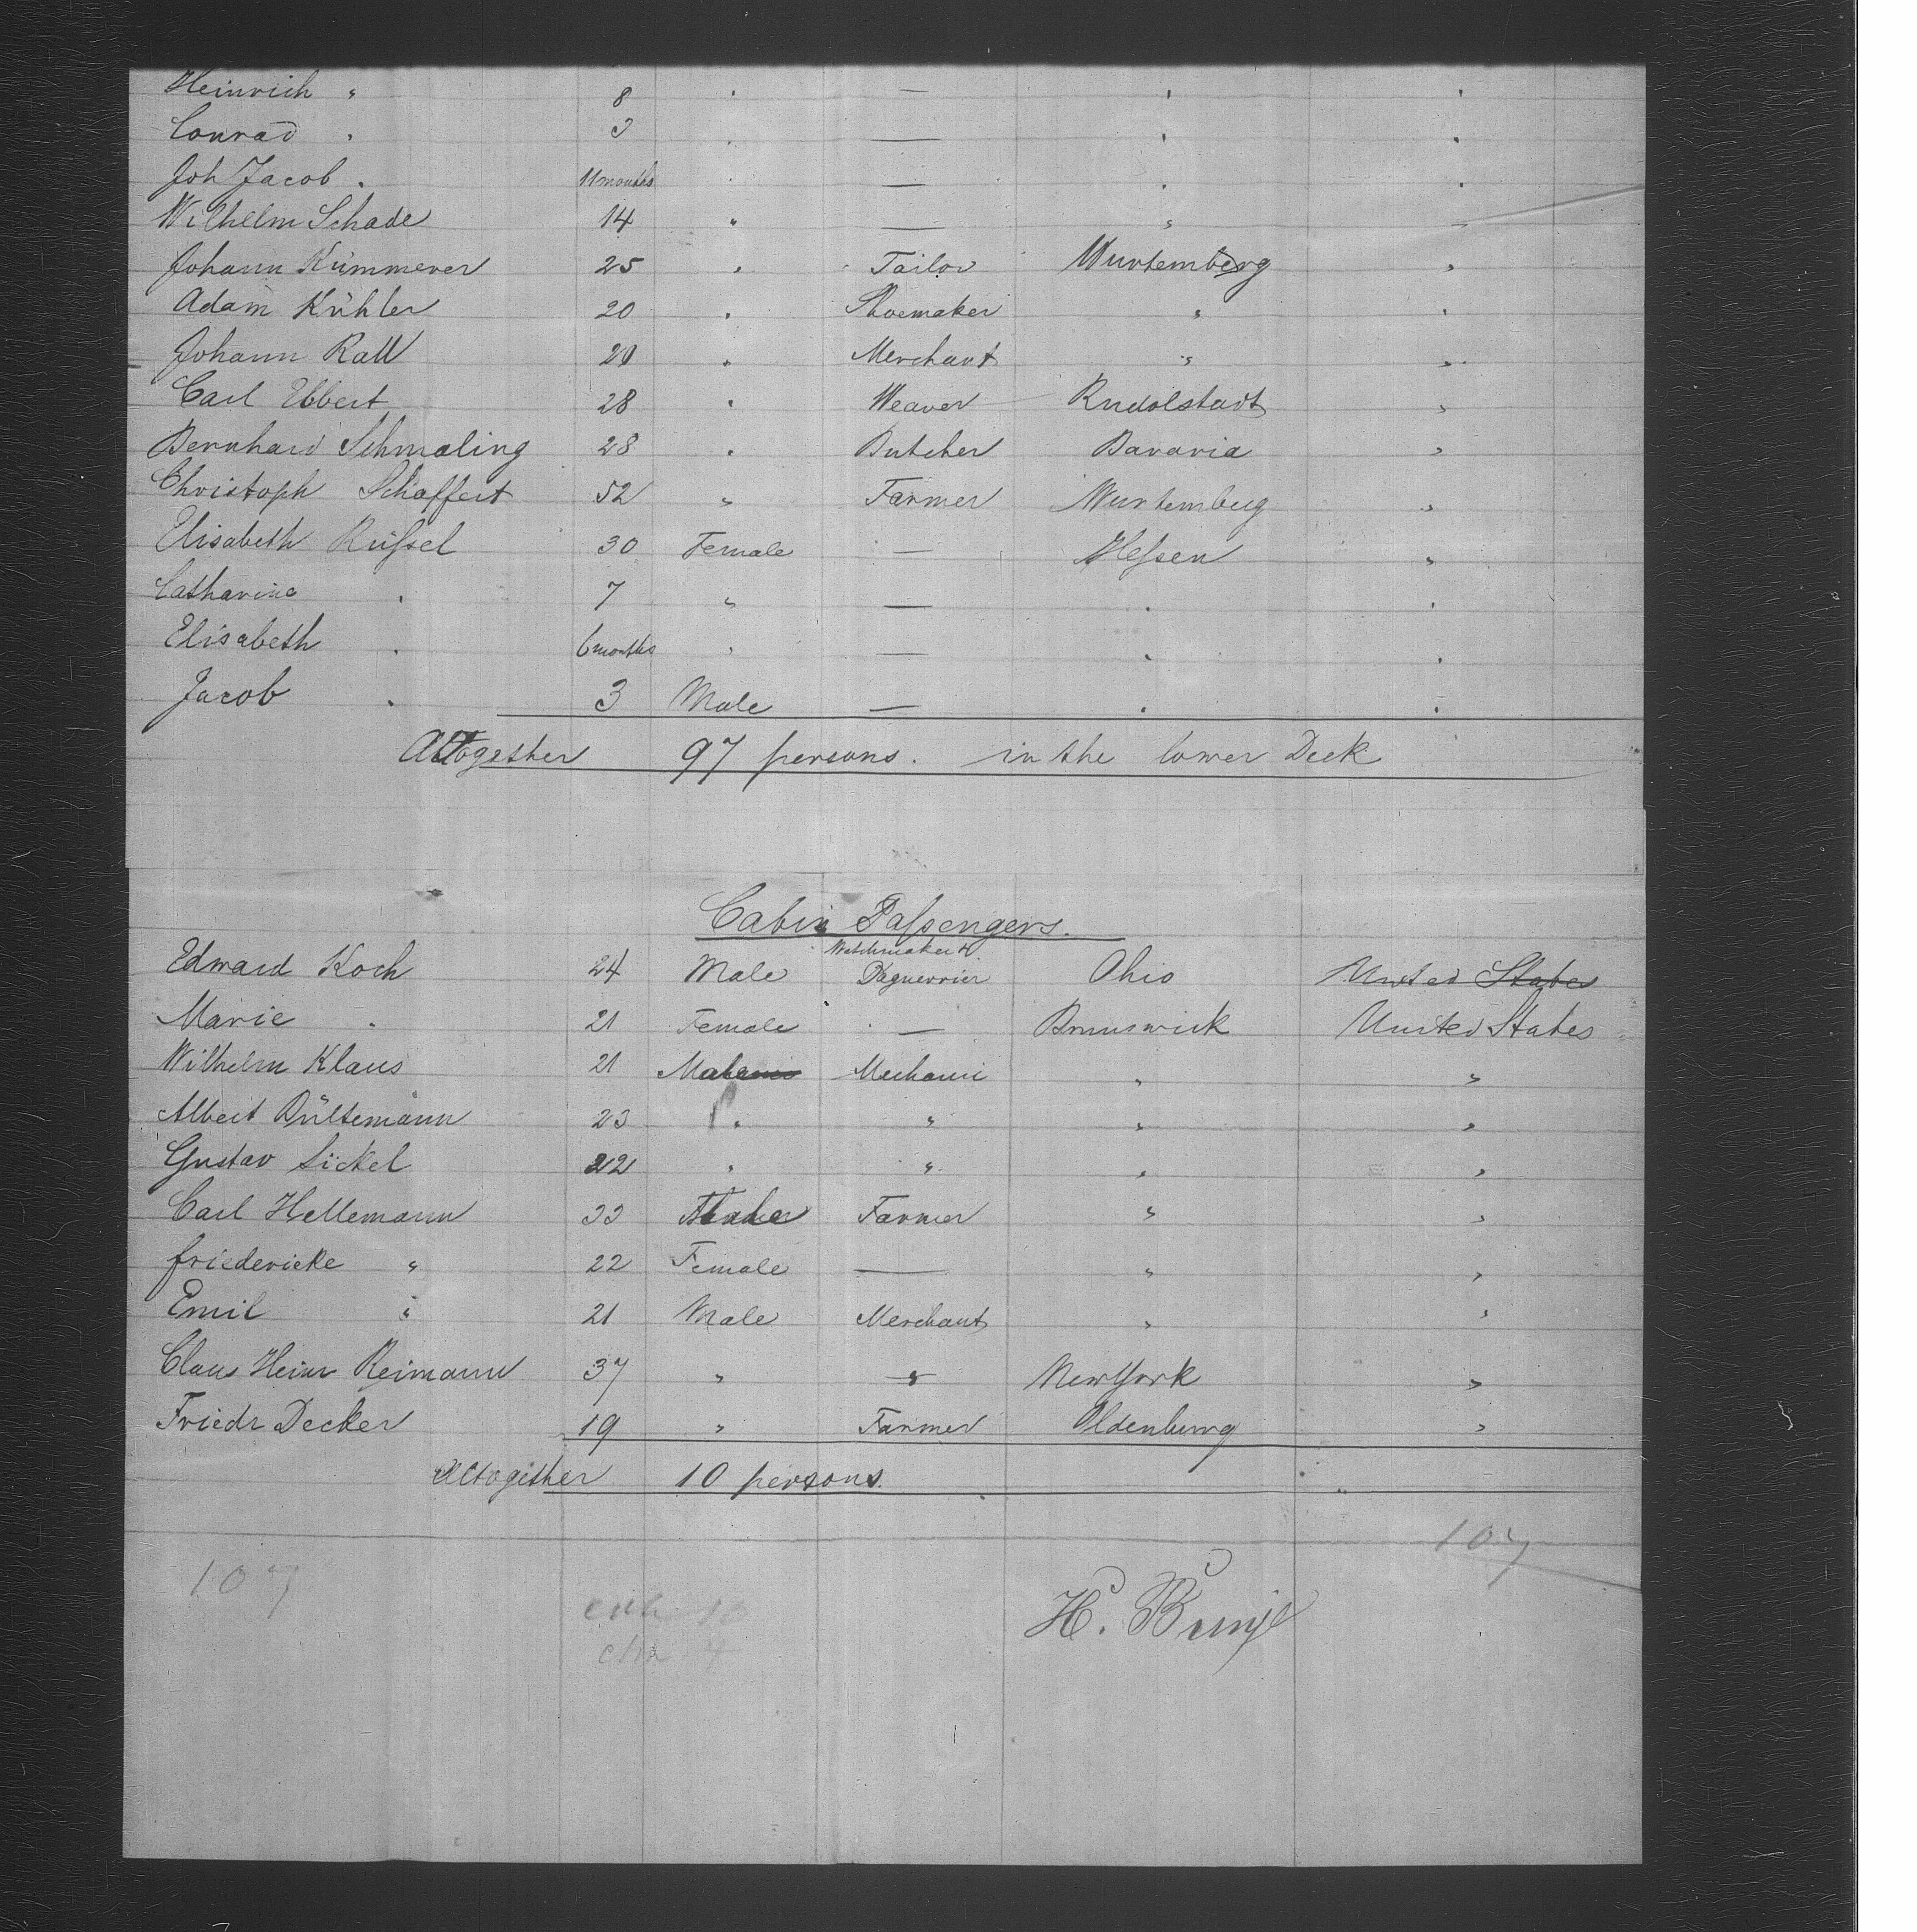 Heinrich " 8 " — " "
Conrad " 3 " — " "
Joh Jacob " 11 months " — " "
Wilhelm Schade 14 " — " "
Johann Kümmerer 25 " Tailor Wurtemberg "
Adam Kühler 20 " Shoemaker " "
Johann Rall 20 " Merchant " "
Carl Ebbert 28 " Weaver Rudolstadt "
Bernhard Schmaling 28 " Butcher Bavaria "
Christoph Schäffert 52 " Farmer Wurtemberg "
Elisabeth Rüssel 30 Female — Hessen "
Catharine " 7 " — " "
Elisabeth " 6 months " — " "
Jacob " 3 Male — " "
Altogether 97 persons. in the lower Deck
Cabin Passengers.
Watchmaker &
Edward Koch 24 Male Daguerrier Ohio United States
Marie " 21 Female — Brunswick United States
Wilhelm Klaus 21 Male Mechanic " "
Albert Bültemann 23 " " " "
Gustav Sickel 22 " " " "
Carl Hellemann 33 Farmer " "
Friedericke " 22 Female — " "
Emil " 21 Male Merchant " "
Claus Heinr Reimann 37 " " New York "
Friedr Decker 19 " Farmer Oldenburg "
Altogether 10 persons.
107
107
H. Bunje
10
4